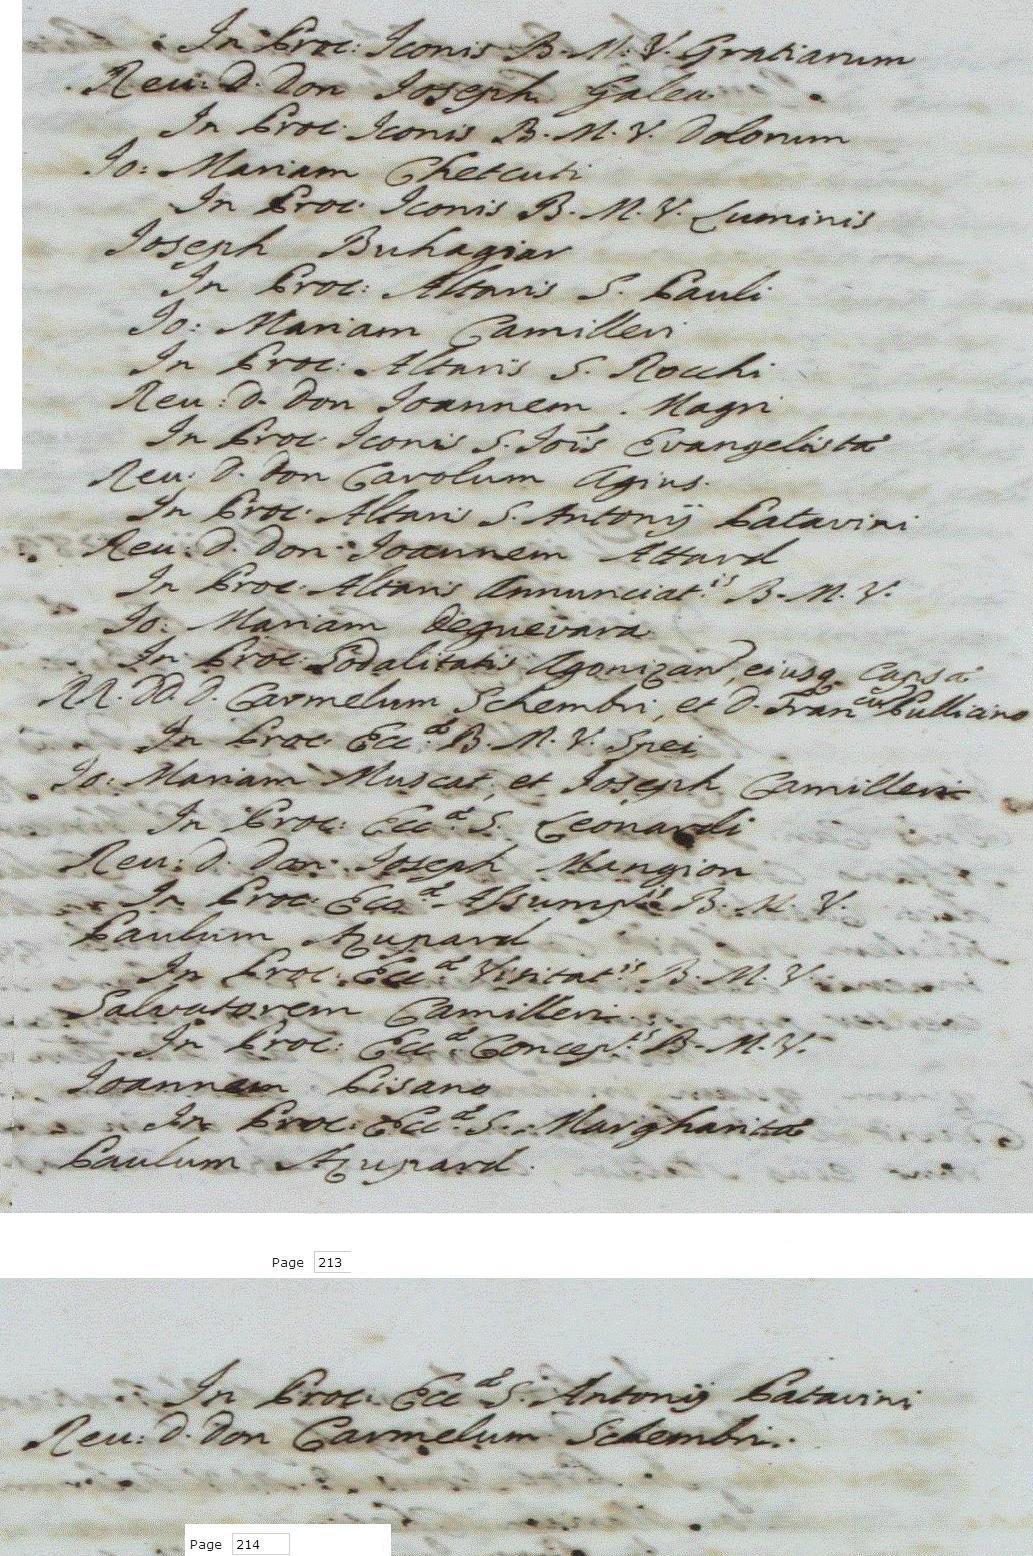 In Proc: Iconis B. M. V. Gratiarum
Reu: D. Don Joseph Galea
In Proc: Iconis B. M. V. Dolorum
Io: Mariam Chetcuti
In Proc: Iconis B. M. V. Luminis
Joseph Buhagiar
In Proc: Altaris S. Pauli
Io: Mariam Camilleri
In Proc: Altaris S. Rocchi
Reu: D. Don Joannem Magri
In Proc: Iconis S. Jois Evangelistæ
Reu: D. Don Carolum Agius.
In Proc: Altaris S. Antonij Patavini
Reu: D. Don Joannem Attard
In Proc: Altaris Annunciat:is B. M. V.
Io: Mariam Deguevara
In Proc: Sodalitatis Agonizan, ejusq. Capsæ
RR. DD. D. Carmelum Schembri, et D. Francum Pulliciano
In Proc: Ecc:æ B. M. V. Spei
Io: Mariam Muscat, et Joseph Camilleri
In Proc: Ecc:æ S. Leonardi
Reu: D. Don Joseph Mangion
In Proc: Ecc:æ Assumpt:is B. M. V.
Paulum Azupard
In Proc: Ecc:æ Visitat:is B. M. V.
Salvatorem Camilleri
In Proc: Ecc:æ Concep:is B. M. V.
Joannem Pisano
In Proc: Ecc:æ S. Margharitæ
Paulum Azupard.
Page 213
In Proc: Ecc:æ S. Antonij Patavini
Reu: D. Don Carmelum Schembri.
Page 214